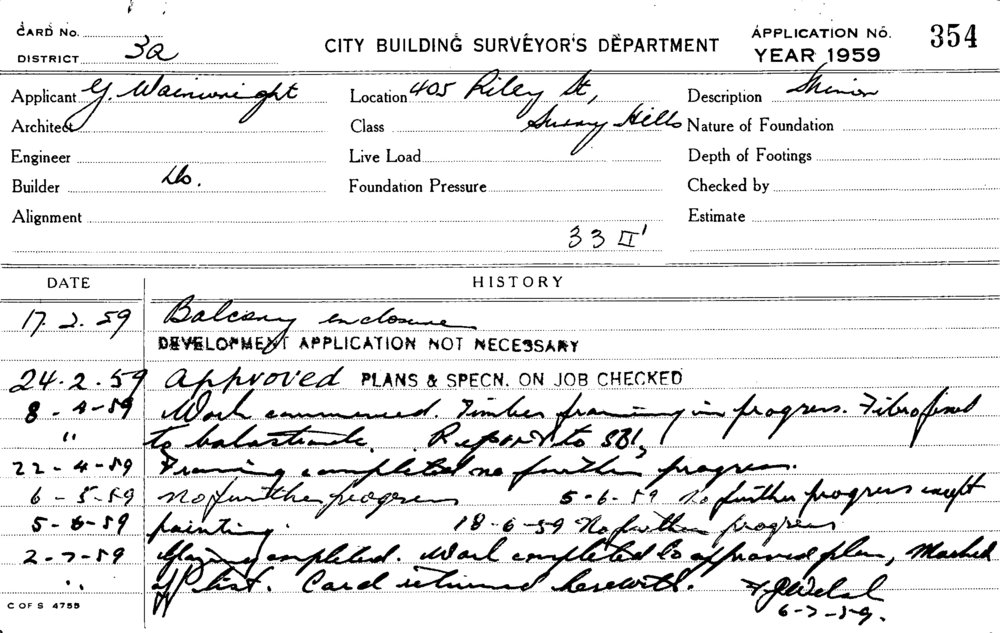 CARD No.
DISTRICT 3a
CITY BUILDING SURVEYOR'S DEPARTMENT
APPLICATION No. 354
YEAR 1959
Applicant G. Wainwright
Location 405 Riley St,
Description Minor
Architect
Class Surry Hills
Nature of Foundation
Engineer
Live Load
Depth of Footings
Builder Do.
Foundation Pressure
Checked by
Alignment
Estimate
33 □'
DATE HISTORY
17.2.59 Balcony enclosure
DEVELOPMENT APPLICATION NOT NECESSARY
24.2.59 Approved PLANS & SPECN. ON JOB CHECKED
8-4-59 Work commenced. Timber framing in progress. Fibro fixed
" to balustrade. Report to SBI,
22-4-59 Framing completed no further progress.
6-5-59 No further progress 5-6-59 No further progress except
5-6-59 painting. 18-6-59 No further progress
2-7-59 Glazing completed. Work completed to approved plan, Marked
" off P list. Card returned herewith.
6-7-59.
C OF S 4755